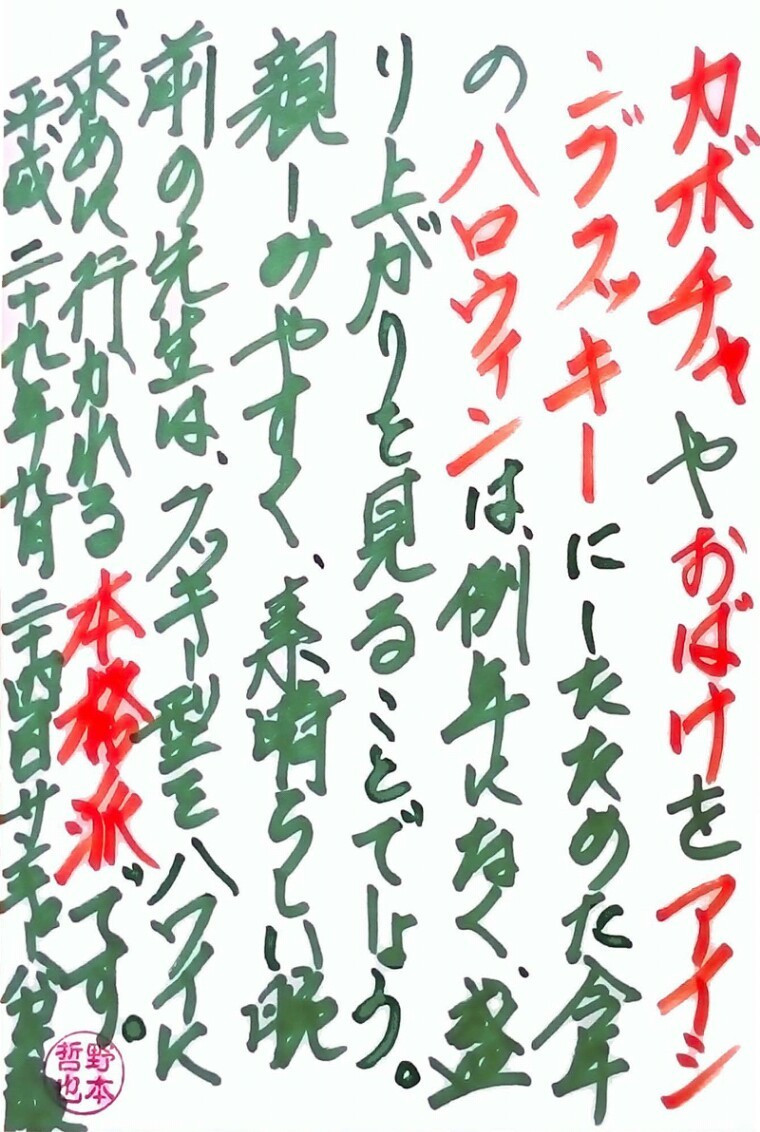 カボチャやおばけをアイシ
ングクッキーにしたためた今年
のハロウィンは、例年になく、盛
り上がりを見ることでしょう。
親しみやすく、素晴らしい腕
前の先生は、クッキー型をハワイに
求めに行かれる本格派です。
平成二十九年 二十四日
野本哲也